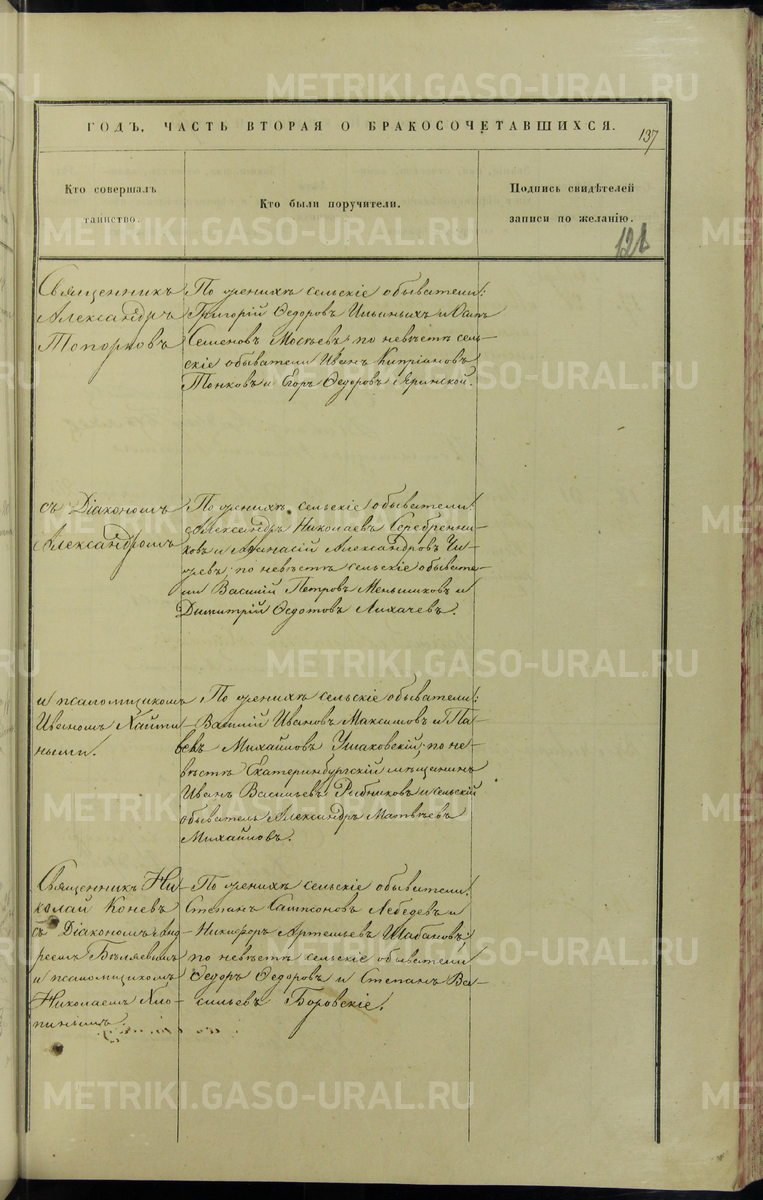 METRIKI.GASO-URAL.RU
ГОДЪ, ЧАСТЬ ВТОРАЯ О БРАКОСОЧЕТАВШИХСЯ.
137
Кто совершалъ
таинство.
Кто были поручители.
Подпись свидѣтелей
записи по желанію.
Священникъ
Александръ
Топорковъ
По женихѣ сельскіе обыватели:
Григорій Ѳедоровъ Ильиныхъ и
Семеновъ по невѣстѣ сель-
скіе обыватели Иванъ Кипріановъ
Тонковъ и Егоръ Ѳедоровъ Яринской.
съ Діакономъ
Александромъ
По женихѣ сельскіе обыватели:
Александръ Николаевъ Серебренни-
ковъ и Афанасій Александровъ Чи-
ревъ; по невѣстѣ сельскіе обывате-
ли Василій Петровъ Меньшиковъ и
Димитрій Ѳедотовъ Лихачевъ.
и псаломщикомъ
Иваномъ
ными.
По женихѣ сельскіе обыватели:
Василій Ивановъ Максимовъ и Па-
велъ Михайловъ Ушаковскій; по не-
вѣстѣ Екатеринбургскій мѣщанинъ
Иванъ Васильевъ Рыбниковъ и сельскій
обыватель Александръ Матвѣевъ
Михайловъ.
Священникъ Ни-
колай Коневъ
съ Діакономъ Анд-
реемъ Бѣляевымъ
и псаломщикомъ
Николаемъ Хло-
пинымъ.
По женихѣ сельскіе обыватели:
Степанъ Сампсоновъ Лебедевъ и
Никифоръ Артемьевъ Шабановъ;
по невѣстѣ сельскіе обыватели
Ѳедоръ Ѳедоровъ и Степанъ Ва-
сильевъ Боровскіе.